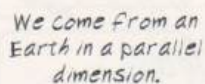 We come from an
Earth in a parallel
dimension.